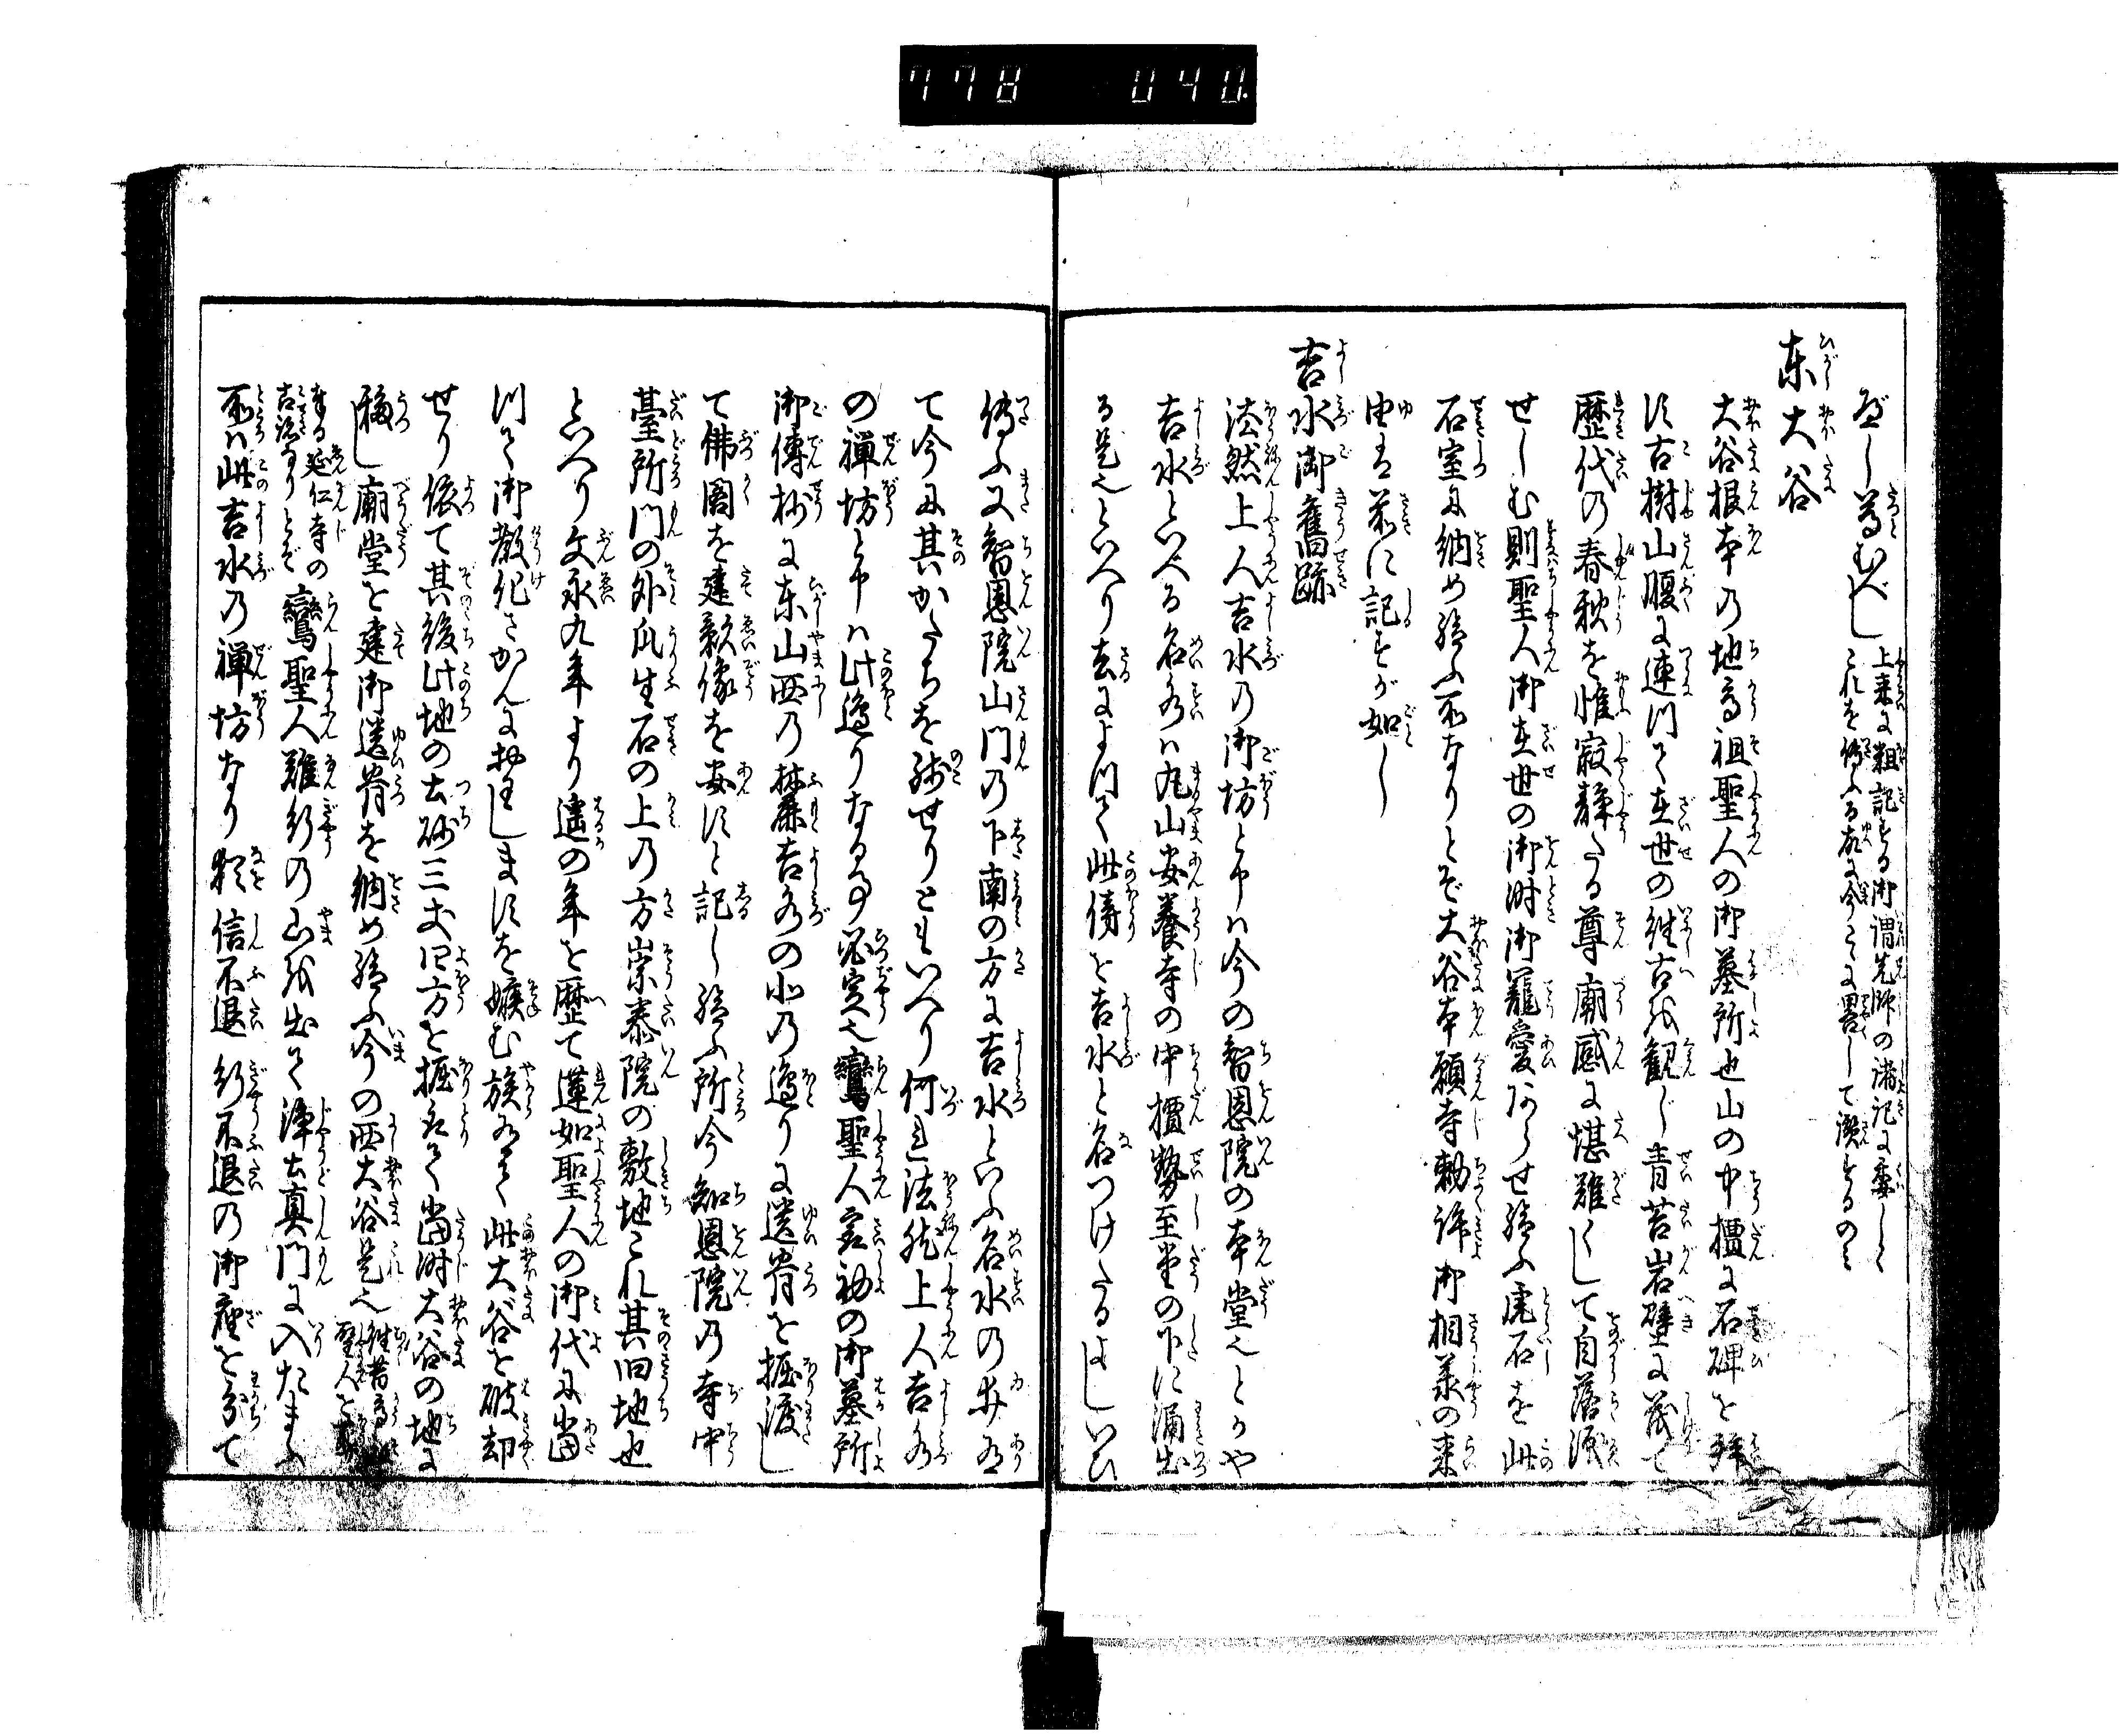 778 040.
べし尊むべし 上来に粗記する御謂先師の諸記に委しく
これを傳ふる故に今こゝに畧して濺するのミ
東大谷
大谷根本の地高祖聖人の御墓所也山の中檀に石碑を拝
す古樹山腹に連つて在世の往古を観じ青苔岩壁に茂て
歴代の春秋を惟寂静たる尊廟感に堪難くして自落涙
せしむ則聖人御在世の御時御寵愛あらせ給ふ虎石を此
石室に納め給ふ所なりとぞ大谷本願寺勅許御相承の来
由は前に記すが如し
吉水御舊跡
法然上人吉水の御坊と申ハ今の智恩院の本堂也とかや
吉水といへる名水ハ丸山安養寺の中檀勢至堂の下に涌出
る是也といへり去によつて此傍を吉水と名つけたるよしいひ
傳ふ又智恩院山門の下南の方に吉水といふ名水の井有
て今に其かたちを残せりともいへり何れ法然上人吉水
の禅坊と申ハ此邉りなる事必定也鸞聖人最初の御墓所
御傳抄に東山西の禁麓吉水の北の邉りに遺骨を掘渡し
て佛閣を建影像を安すと記し給ふ所今知恩院の寺中
臺所門の外瓜生石の上の方崇泰院の敷地これ其旧地也
といへり文永九年より遥の年を歴て蓮如聖人の御代に當
つて御教化さかんにおはしますを嫉む族有て此大谷を破却
せり依て其後此地の土砂三尺四方を掘取て當時大谷の地に
移し廟堂を建御遺骨を納め給ふ今の西大谷是也 往昔高祖
聖人を
まる延仁寺の
古跡なりとぞ 鸞聖人難行の山を出て浄土真門に入たまふ
所ハ此吉水の禅坊なり猶信不退行不退の御座を分て